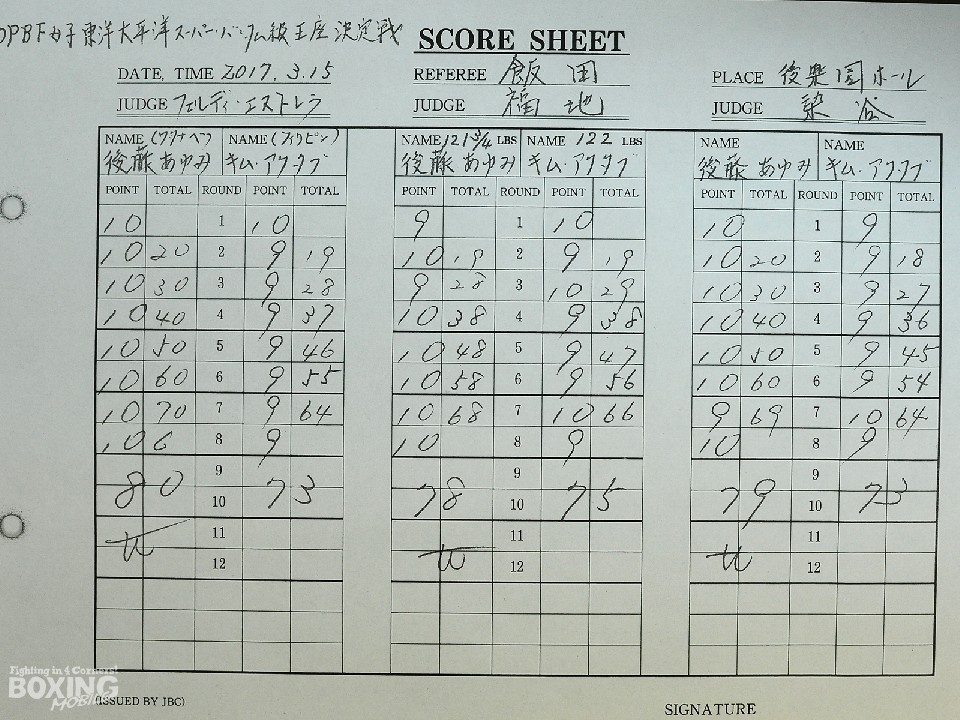 OPBF女子東洋太平洋スーパー・バンタム級王座決定戦
SCORE SHEET
DATE, TIME 2017. 3. 15 REFEREE 飯田 PLACE 後楽園ホール
JUDGE フェルディ・エストレラ JUDGE 福地 JUDGE 染谷
NAME (ワタナベ) NAME (フィリピン) NAME 121 3/4 LBS NAME 122 LBS NAME NAME
後藤あゆみ キム・アクタブ 後藤あゆみ キム・アクタブ 後藤あゆみ キム・アクタブ
POINT TOTAL ROUND POINT TOTAL POINT TOTAL ROUND POINT TOTAL POINT TOTAL ROUND POINT TOTAL
10 1 10 9 1 10 10 1 9
10 20 2 9 19 10 19 2 9 19 10 20 2 9 18
10 30 3 9 28 9 28 3 10 29 10 30 3 9 27
10 40 4 9 37 10 38 4 9 38 10 40 4 9 36
10 50 5 9 46 10 48 5 9 47 10 50 5 9 45
10 60 6 9 55 10 58 6 9 56 10 60 6 9 54
10 70 7 9 64 10 68 7 10 66 9 69 7 10 64
10 8 9 10 8 9 10 8 9
9 9 9
80 10 73 78 10 75 79 10 73
11 11 11
12 12 12
Fighting in 4 Corners!
BOXING
MOBILE
(ISSUED BY JBC)
SIGNATURE